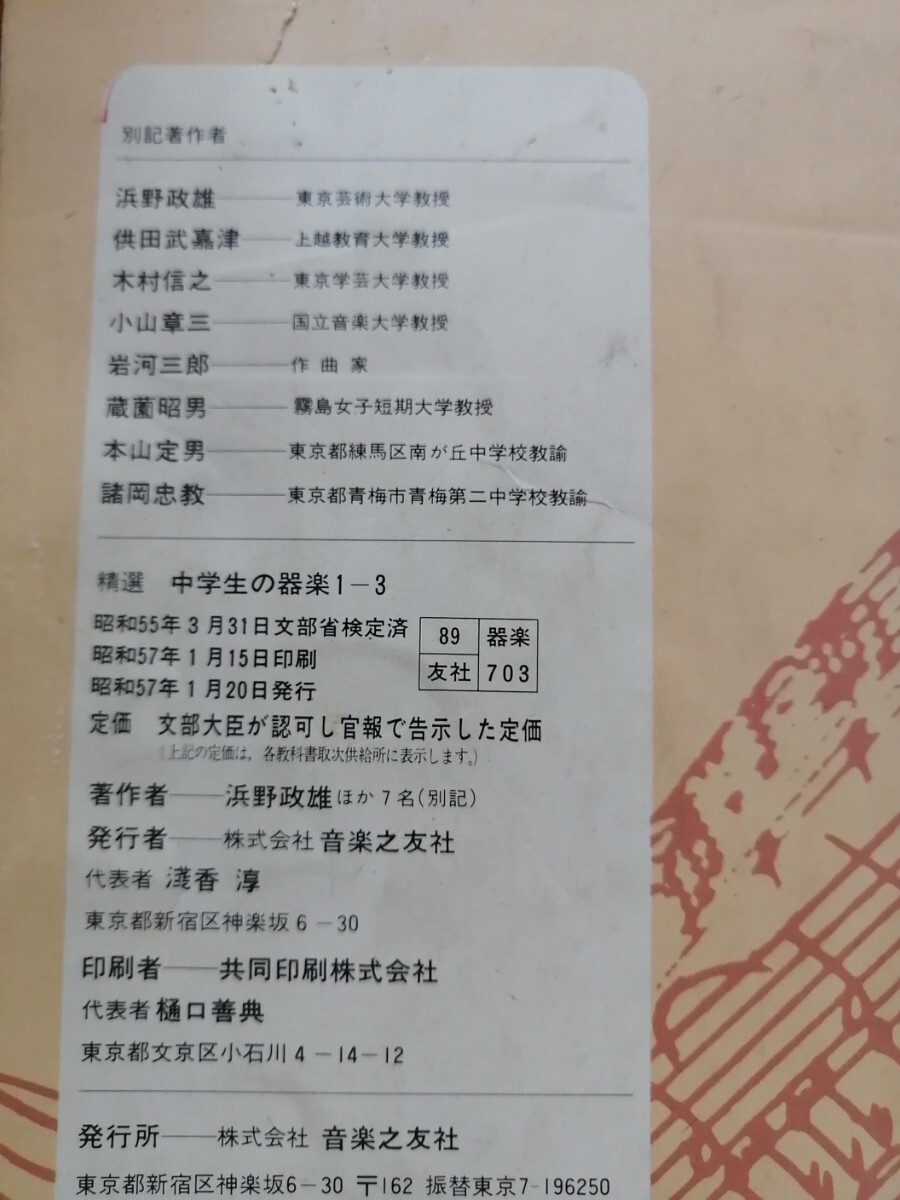 別記著作者
浜野政雄——東京芸術大学教授
供田武嘉津——上越教育大学教授
木村信之——東京学芸大学教授
小山章三——国立音楽大学教授
岩河三郎——作曲家
蔵薗昭男——霧島女子短期大学教授
本山定男——東京都練馬区南が丘中学校教諭
諸岡忠教——東京都青梅市青梅第二中学校教諭
精選 中学生の器楽1-3
昭和55年3月31日文部省検定済
昭和57年1月15日印刷
昭和57年1月20日発行
89 器楽
友社 703
定価 文部大臣が認可し官報で告示した定価
(上記の定価は、各教科書取次供給所に表示します。)
著作者——浜野政雄ほか7名(別記)
発行者——株式会社 音楽之友社
代表者 淺香 淳
東京都新宿区神楽坂6-30
印刷者——共同印刷株式会社
代表者 樋口善典
東京都文京区小石川4-14-12
発行所——株式会社 音楽之友社
東京都新宿区神楽坂6-30 〒162 振替東京7-196250